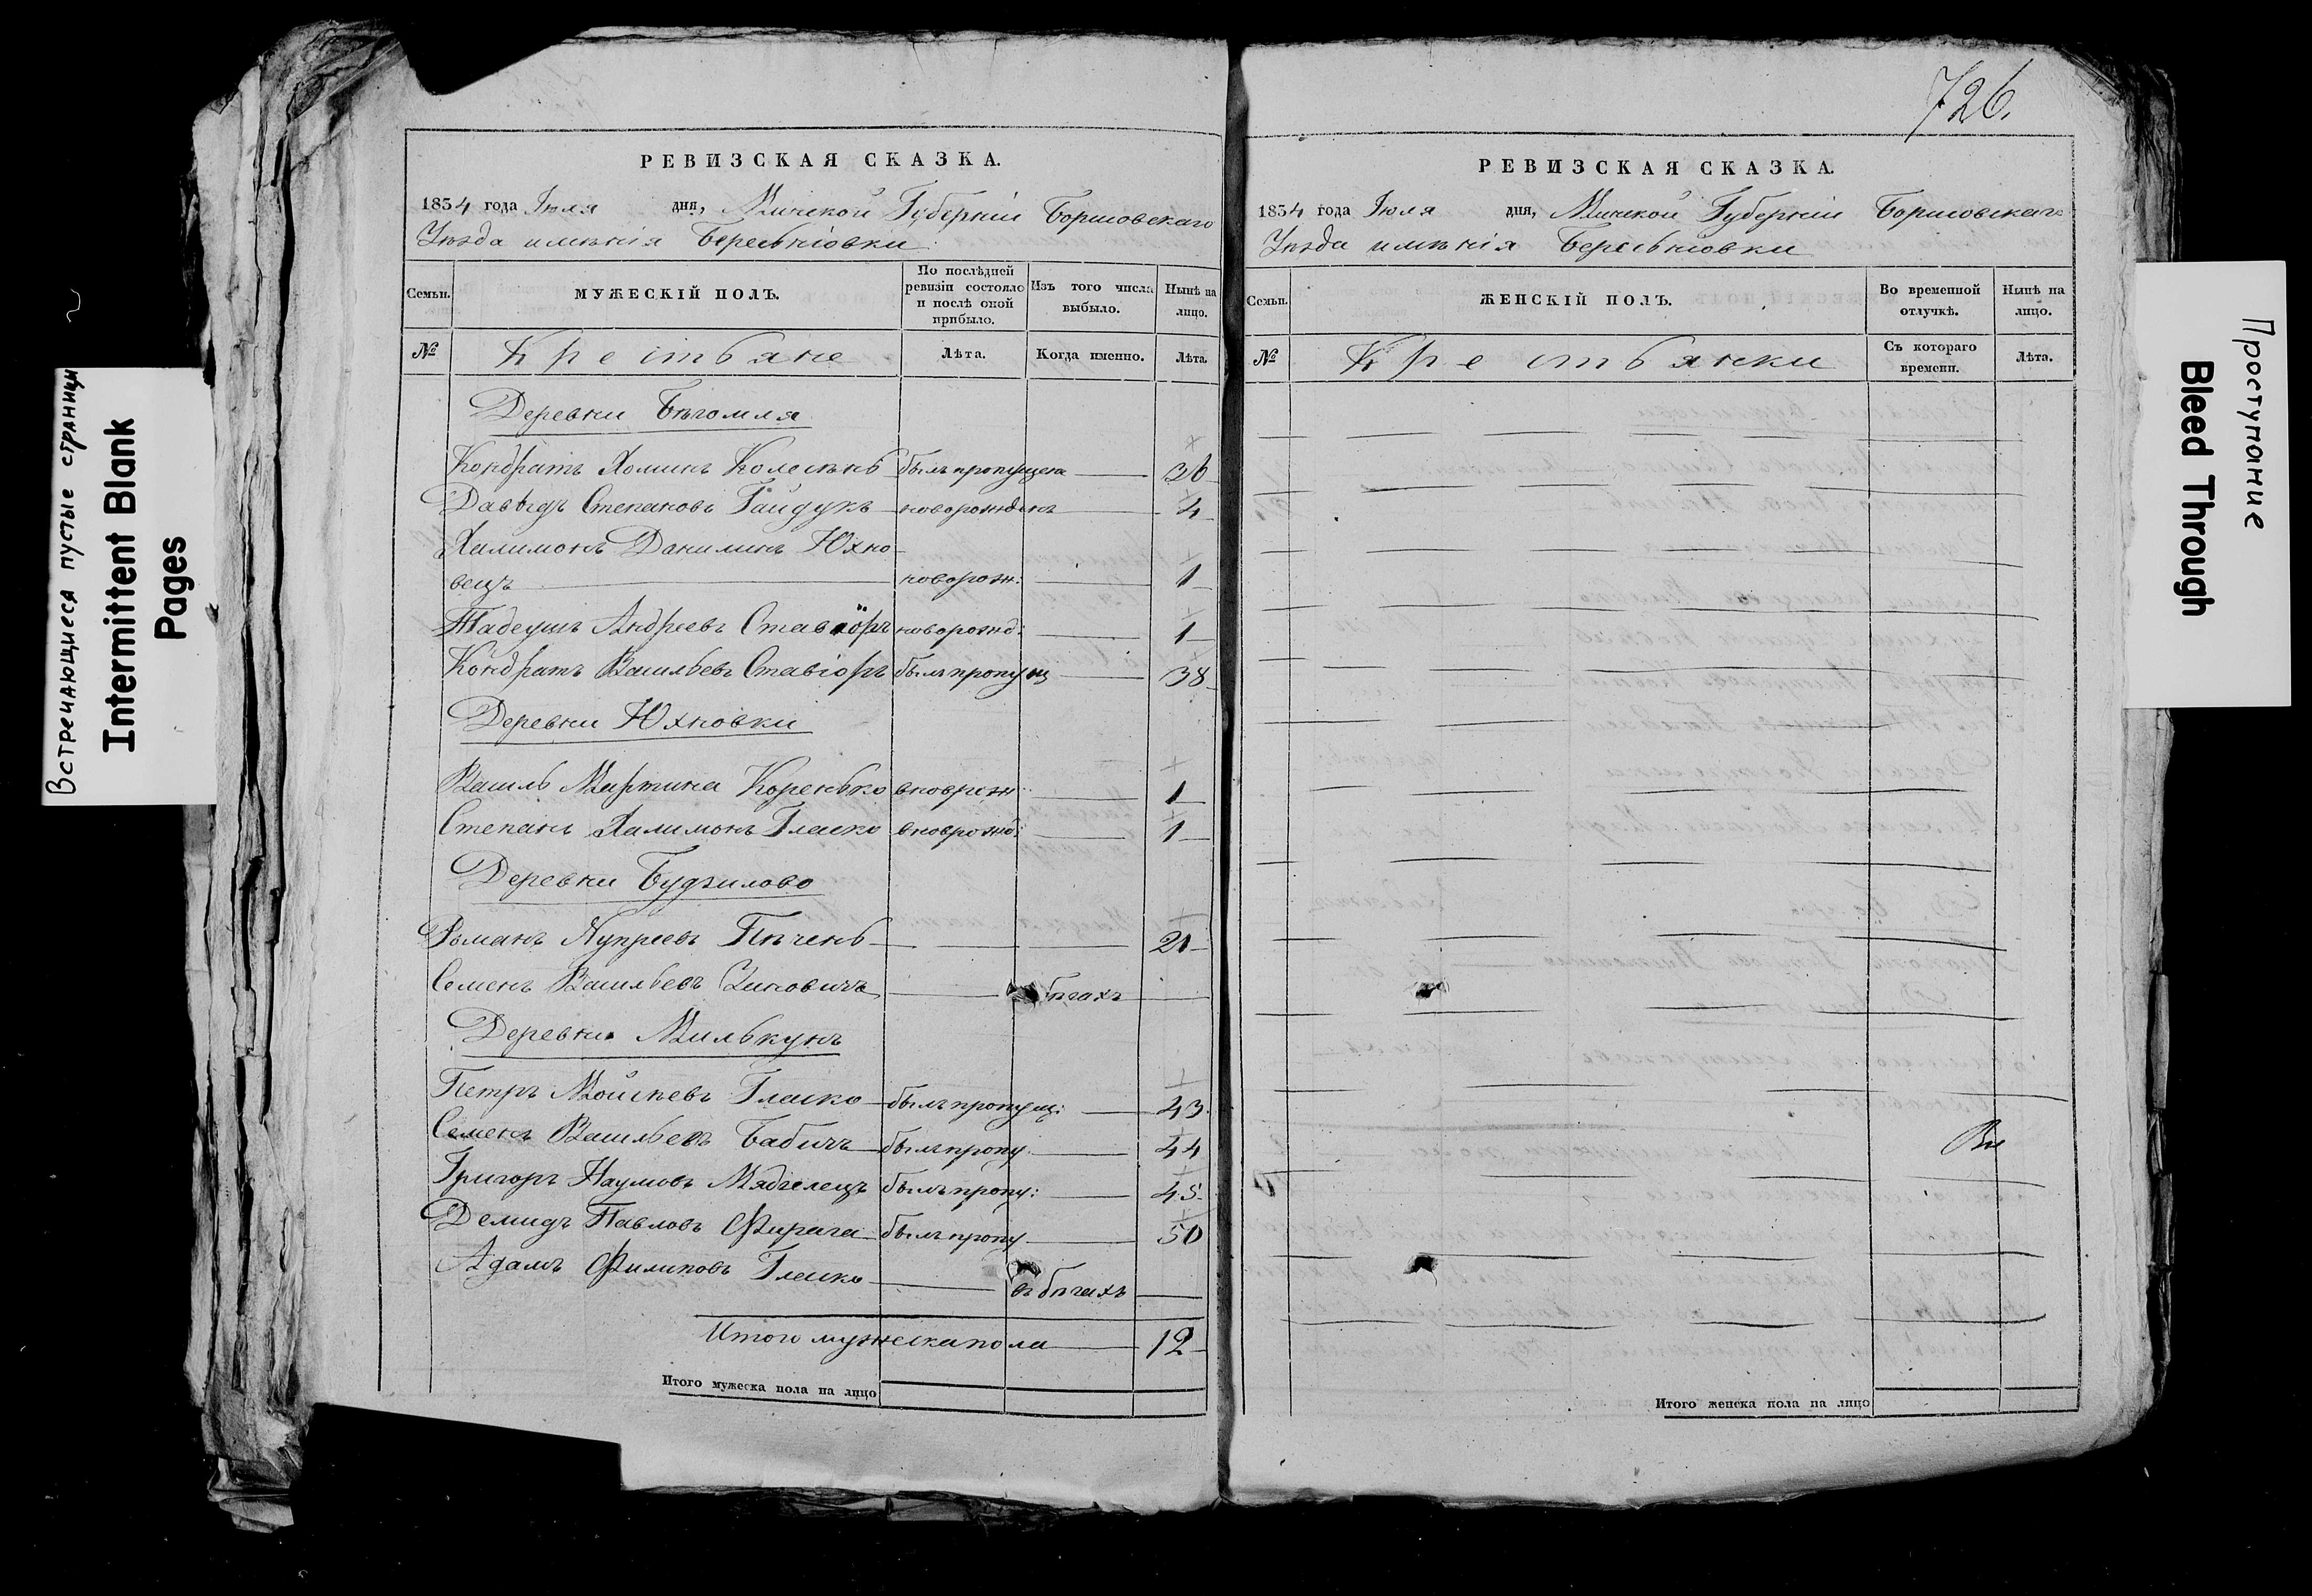 Встречающиеся пустые страницы
Intermittent Blank
Pages
РЕВИЗСКАЯ СКАЗКА.
1854 года Іюля дня, Минской Губерніи Борисовскаго
Уѣзда имѣнія Березьніовки
Семьи.
МУЖЕСКІЙ ПОЛЪ.
По послѣдней
ревизіи состояло
и послѣ оной
прибыло.
Изъ того числа
выбыло.
Нынѣ на
лицо.
№
Крестьяне
Лѣта.
Когда именно.
Лѣта.
Деревни Бѣгомля
Кондратъ Хоминъ былъ пропущенъ 36
Давыдъ Степановъ Гайдукъ новорожденъ 4
Халимонъ Данилинъ Юхно-
вецъ новорож: 1
Тадеушъ Андреевъ Ставіоръ новорожд: 1
Кондратъ Васильевъ Ставіоръ былъ пропущ 38
Деревни Юхновки
Василь Мартина Коренько вноврож 1
Степанъ Халимонъ Гласко вноврожд: 1
Деревни Будзилово
Романъ Купреевъ Пѣчень 21
Семенъ Васильевъ Зиновичъ бѣгахъ
Деревни Милькунъ
Петръ Мойсѣевъ Гласко былъ пропущ: 43
Семенъ Васильевъ Бабичъ былъ пропу 44
Григоръ Наумовъ Мядзелецъ былъ пропу: 45
Демидъ Павловъ Фирага былъ пропу 50
Адамъ Филиповъ Гласко въ бѣгахъ
Итого мужеска пола 12
Итого мужеска пола на лицо
726.
РЕВИЗСКАЯ СКАЗКА.
1854 года Іюля дня, Минской Губерніи Борисовскаго
Уѣзда имѣнія Березьніовки
Семьи.
ЖЕНСКІЙ ПОЛЪ.
Во временной
отлучкѣ.
Нынѣ на
лицо.
№
Крестьянки
Съ котораго
времени.
Лѣта.
Итого женска пола на лицо
Проступание
Bleed Through